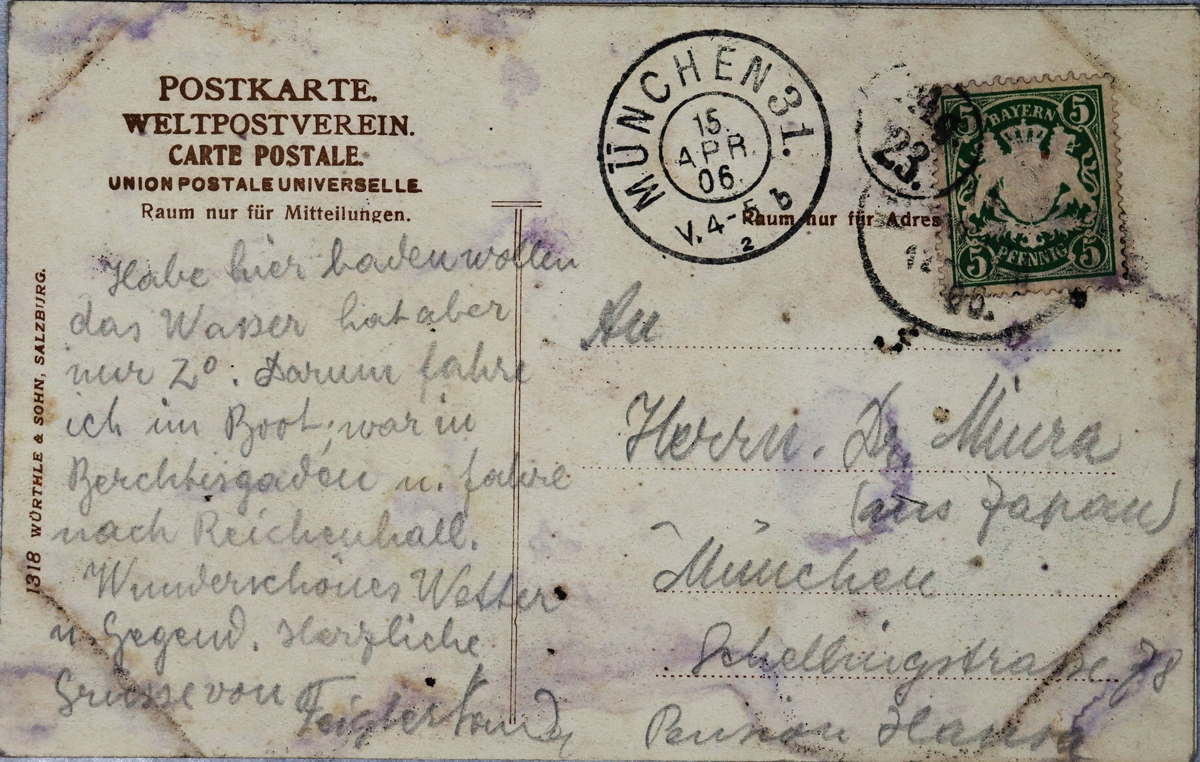 POSTKARTE.
WELTPOSTVEREIN.
CARTE POSTALE.
UNION POSTALE UNIVERSELLE
Raum nur für Mitteilungen.
1318 WÜRTHLE & SOHN, SALZBURG.
Habe hier baden wollen
das Wasser hat aber
nur 2°. Darum fahre
ich im Boot; war in
Berchtesgaden u. fahre
nach Reichenhall.
Wunderschönes Wetter
u. Gegend. Herzliche
Grüsse von
MÜNCHEN 31.
15.
APR.
06.
V. 4-5 b
2
Raum nur für Adres
23.
5 BAYERN 5
5 PFENNIG 5
An
Herrn. Dr. Miura
(aus Japan)
München
Schellingstrasse 78
Pension Hansa